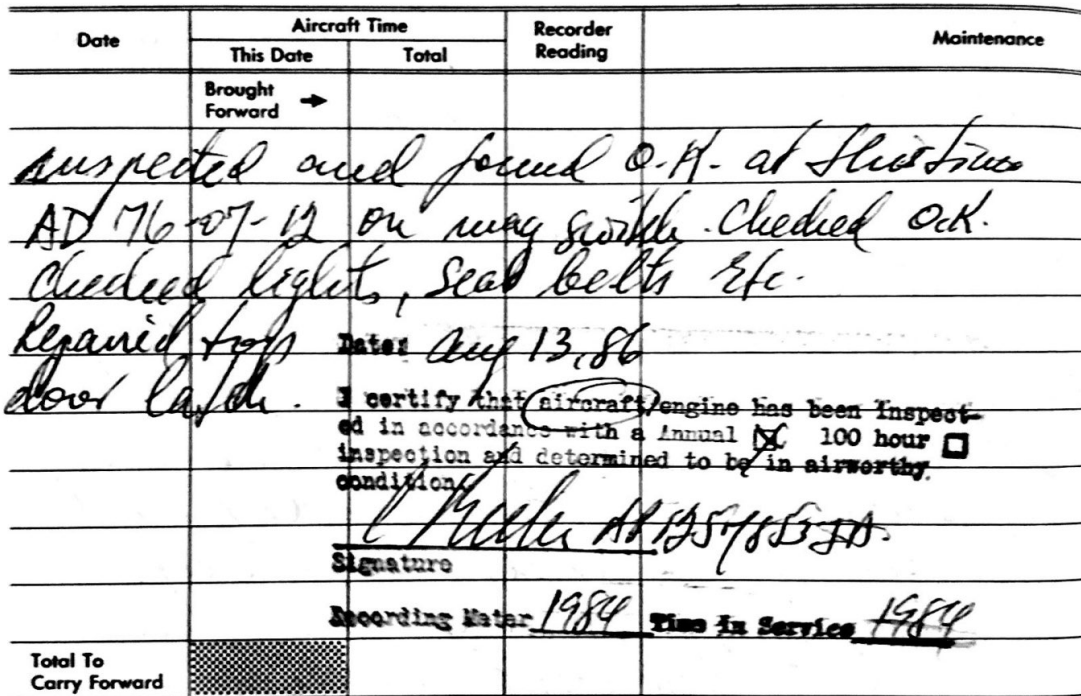 Date Aircraft Time Recorder Reading Maintenance
This Date Total
Brought Forward →
inspected and found O.K. at this time
AD 76-07-12 on mag switch. Checked O.K.
Checked lights, Seat belts Etc.
Repaired top
door latch.
Date: Aug 13, 86
I certify that aircraft/engine has been inspect-
ed in accordance with a Annual ☒ 100 hour ☐
inspection and determined to be in airworthy
condition
AP IA
Signature
Recording Meter 1984 Time in Service 1984
Total To
Carry Forward